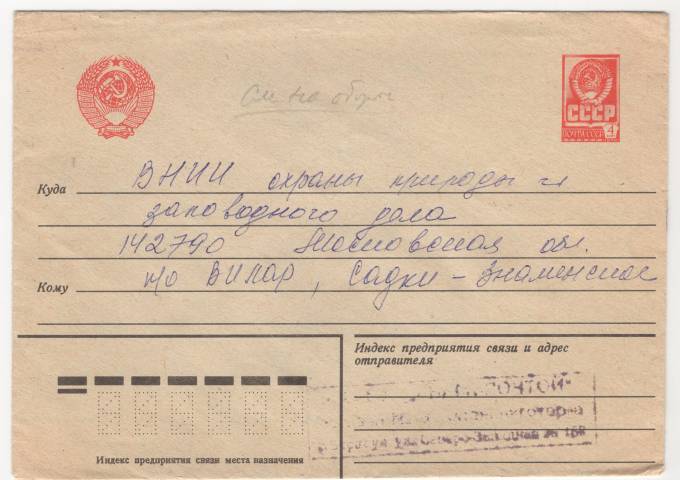 См. на обороте
СССР
ПОЧТА СССР 4
Куда
ВНИИ охраны природы и
заповедного дела
142790 Московская обл.
Кому
п/о ВИЛАР, Садки-Знаменское
Индекс предприятия связи и адрес
отправителя
ПОЧТОЙ
Индекс предприятия связи места назначения